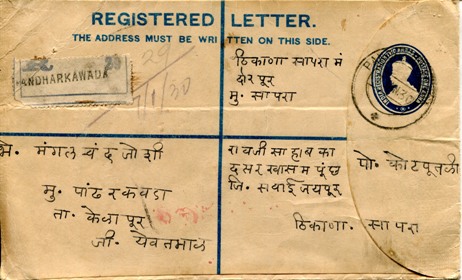 REGISTERED LETTER.
THE ADDRESS MUST BE WRITTEN ON THIS SIDE.
ANDHARKAWADA
29
7/1/30
ठिकाणा सापरा मं
मु. सापरा
मि. मंगल चंद जोशी
मु. पांढरकवडा
ता. केळापूर
जी. येवतमाळ
रावजी साहाब का
जि. सवाई जयपूर
पो. कोटपूतली
ठिकाणा. सापरा